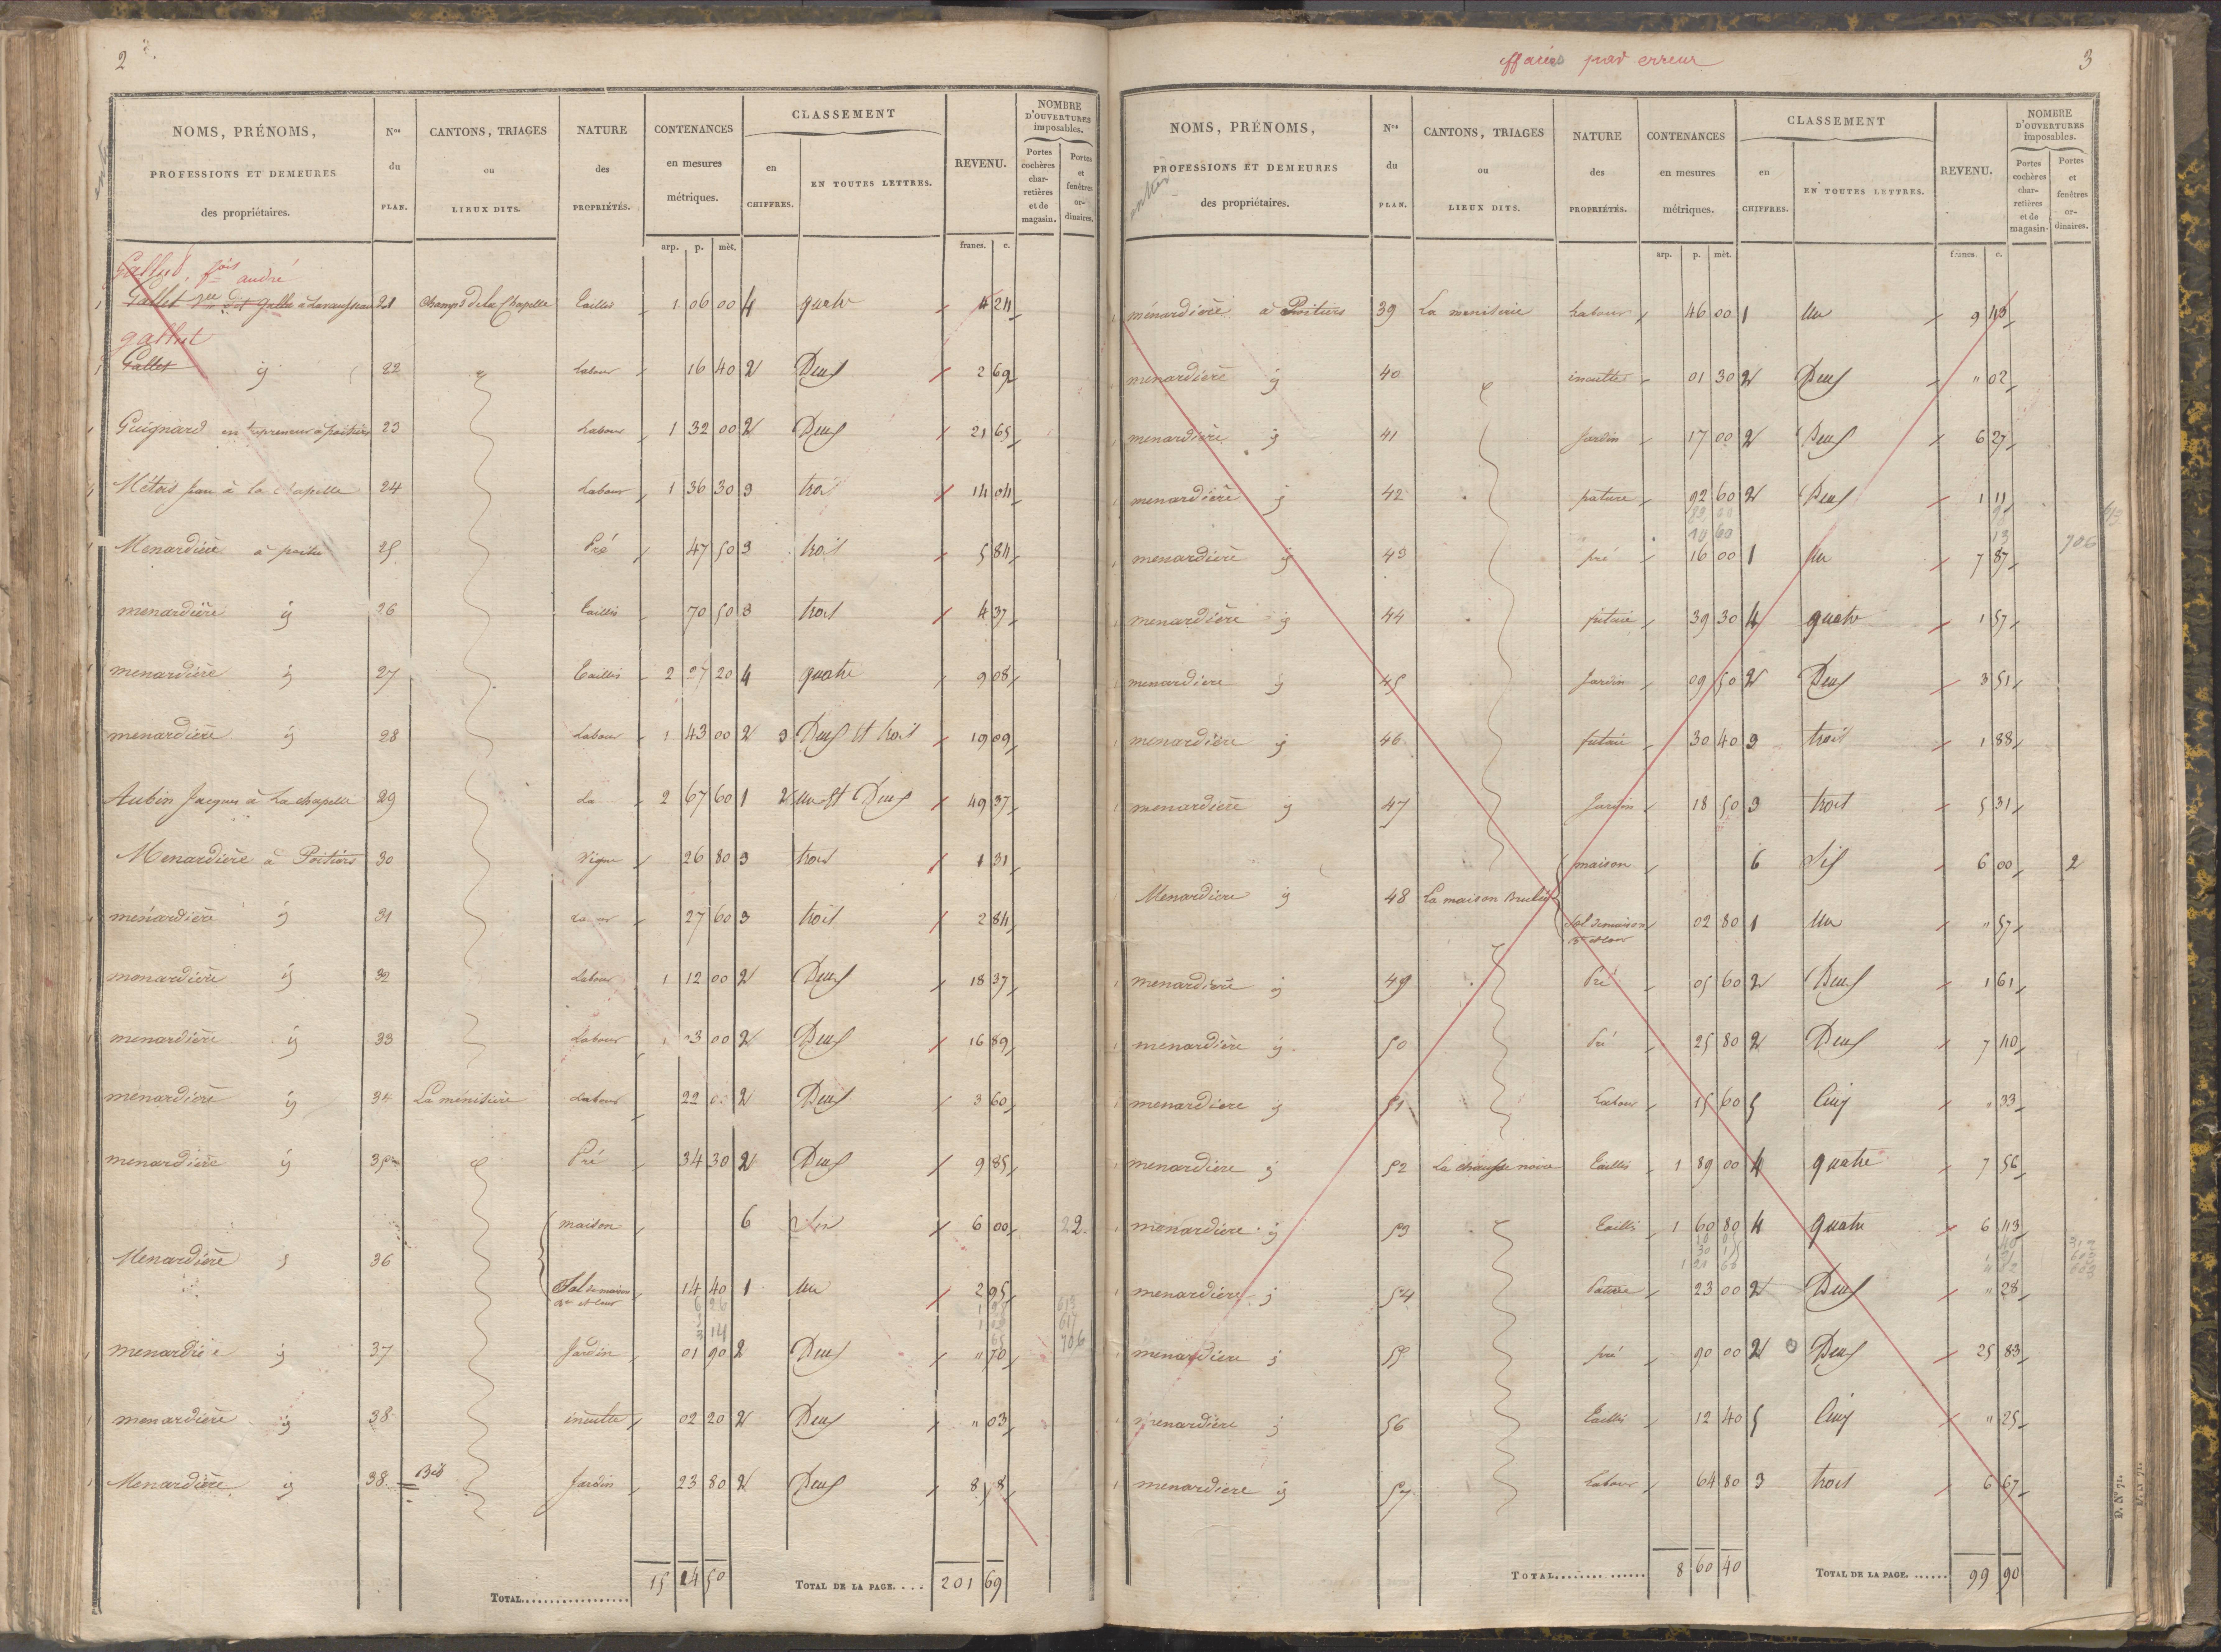 2
NOMS, PRÉNOMS, PROFESSIONS ET DEMEURES des propriétaires. | Nos du PLAN. | CANTONS, TRIAGES ou LIEUX DITS. | NATURE des PROPRIÉTÉS. | CONTENANCES en mesures métriques. | CLASSEMENT en CHIFFRES. | EN TOUTES LETTRES. | REVENU. | NOMBRE D'OUVERTURES imposables. Portes cochères charretières et de magasin. | Portes et fenêtres ordinaires.
arp. p. mèt. francs. c.
andré
21 Champs de la Chapelle Taillis 1 06 00 4 quatre 4 24
gallet
Gallet ij 22 Labour 16 40 2 Deux 2 69
Guignard entrepreneur à poitiers 23 Labour 1 32 00 2 Deux 21 65
Métois Jean à la chapelle 24 Labour 1 36 30 3 trois 14 04
Menardière à 25 Pré 47 50 3 trois 5 84
menardière ij 26 Taillis 70 50 3 trois 4 37
menardière ij 27 Taillis 2 27 20 4 quatre 9 08
menardière ij 28 Labour 1 43 00 2 3 Deux et trois 19 09
Aubin Jacques à La chapelle 29 La 2 67 60 1 2 un et Deux 49 37
Menardière à Poitiers 30 Vigne 26 80 3 trois 1 31
menardière ij 31 27 60 3 trois 2 84
menardière ij 32 Labour 1 12 00 2 Deux 18 37
menardière ij 33 Labour 1 03 00 2 Deux 16 89
menardière ij 34 La ménisière Labour 22 00 2 Deux 3 60
menardière ij 35 Pré 34 30 2 Deux 9 85
maison 6 6 00 2
Menardière ij 36
Sol de maison Bt et cour 14 40 1 un 2 95
menardière ij 37 Jardin 01 90 2 Deux " 70
706
menardière ij 38 inculte 02 20 2 Deux " 03
Menardière ij 38 Bis Jardin 23 80 2 Deux 8
TOTAL 15 24 50 TOTAL DE LA PAGE. 201 69
effacées par erreur
3
NOMS, PRÉNOMS, PROFESSIONS ET DEMEURES des propriétaires. | Nos du PLAN. | CANTONS, TRIAGES ou LIEUX DITS. | NATURE des PROPRIÉTÉS. | CONTENANCES en mesures métriques. | CLASSEMENT en CHIFFRES. | EN TOUTES LETTRES. | REVENU. | NOMBRE D'OUVERTURES imposables. Portes cochères charretières et de magasin. | Portes et fenêtres ordinaires.
arp. p. mèt. francs. c.
ménardière à Poitiers 39 La menisière Labour 46 00 1 Un 9
menardière ij 40 inculte 01 30 2 Deux " 02
menardière ij 41 Jardin 17 00 2 Deux 6 27
menardière ij 42 pature 92 60 2 Deux 1 11
706
menardière ij 43 pré 16 00 1 Un 7 87
menardière ij 44 futaie 39 30 4 quatre 1 57
menardière ij 45 Jardin 09 50 2 Deux 3 51
menardière ij 46 futaie 30 40 3 trois 1 88
menardière ij 47 Jardin 18 50 3 trois 5 31
maison 6 Six 6 00 2
Menardière ij 48 La maison Brulée
Sol de maison Bt et cour 02 80 1 Un " 57
menardière ij 49 Pré 05 60 2 Deux 1 61
menardière ij 50 Pré 25 80 2 Deux 7 40
menardière ij 51 Labour 15 60 5 Cinq " 33
menardière ij 52 La noire Taillis 1 89 00 4 quatre 7 56
menardière ij 53 Taillis 1 60 80 4 quatre 6 43
menardière ij 54 Pature 23 00 2 Deux " 28
menardière ij 55 pré 90 00 2 Deux 25 83
menardière ij 56 Taillis 12 40 5 Cinq " 25
menardière ij 57 Labour 64 80 3 trois 6 67
TOTAL 8 60 40 TOTAL DE LA PAGE. 99 90
D. N° 71.